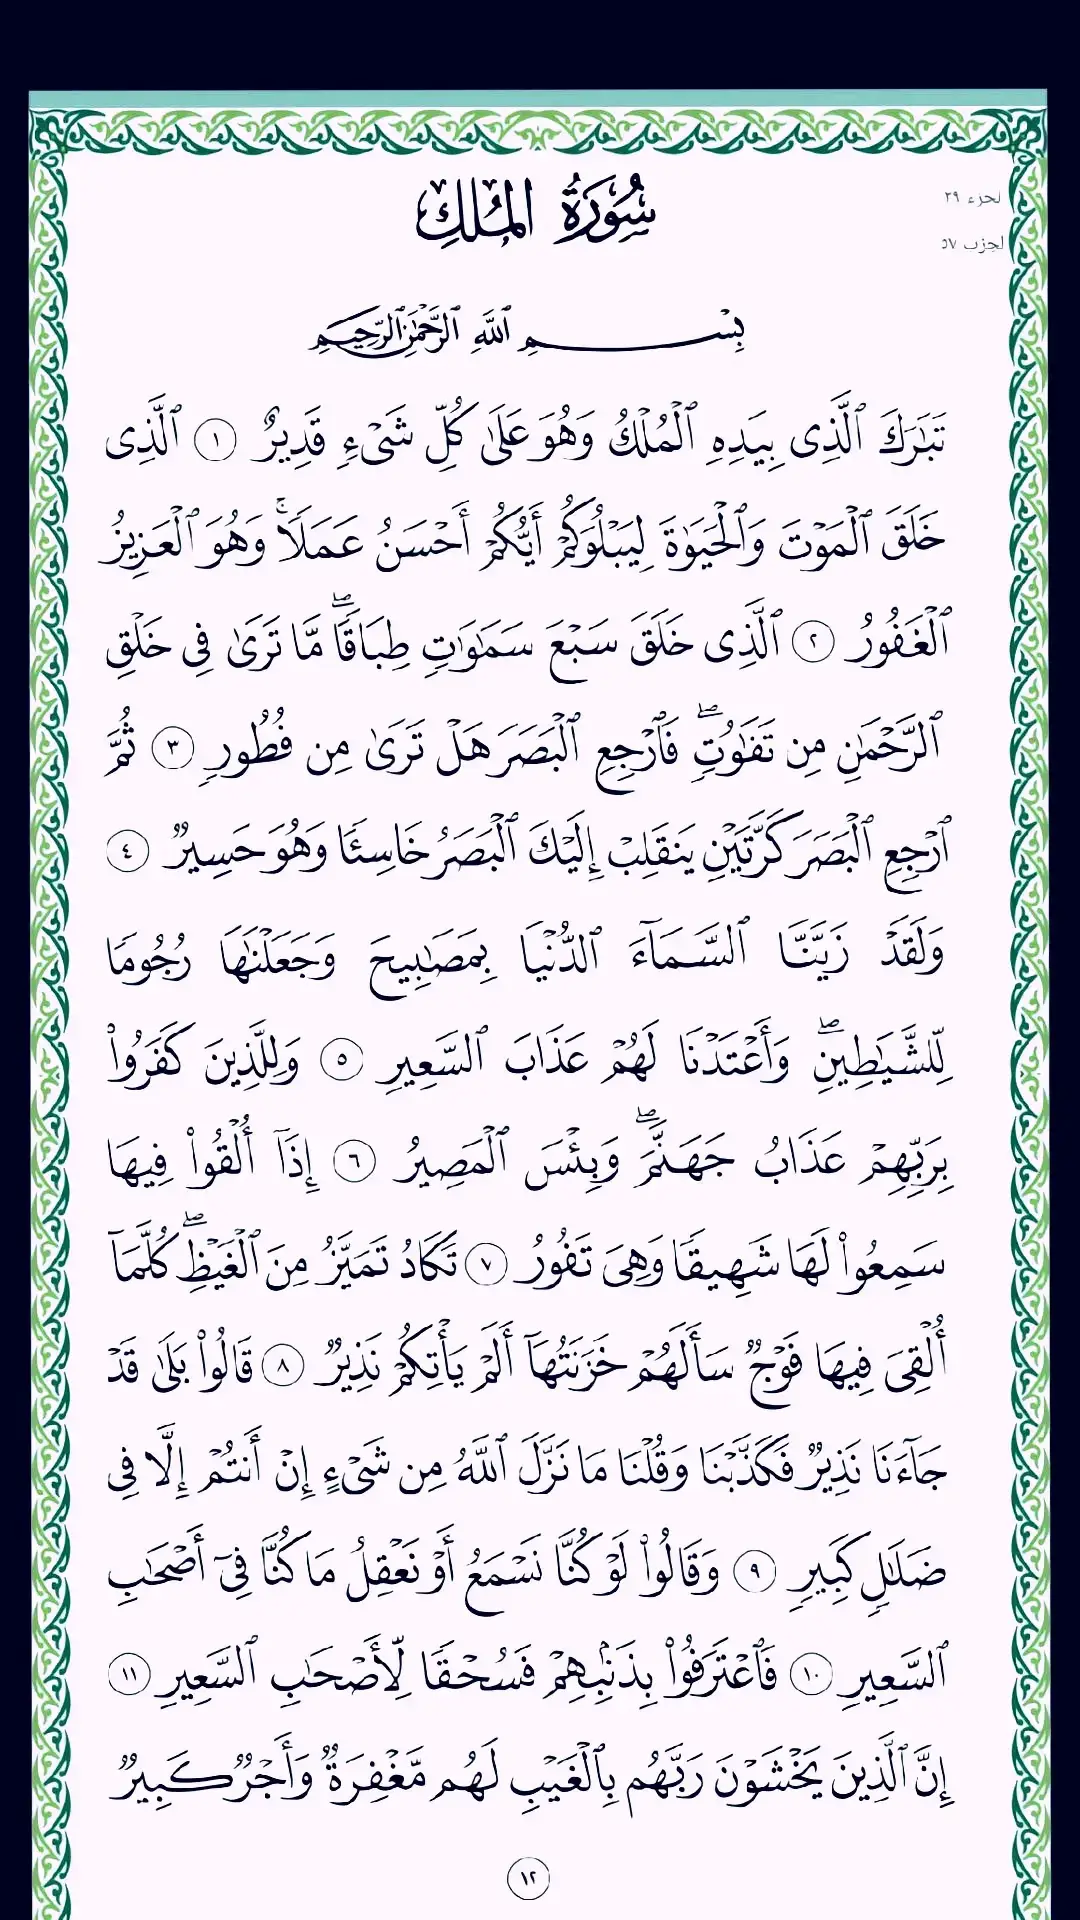 سُورَةُ المُلكِ
الجزء ٢٩
الحزب ٥٧
بِسۡمِ ٱللَّهِ ٱلرَّحۡمَٰنِ ٱلرَّحِيمِ
تَبَٰرَكَ ٱلَّذِي بِيَدِهِ ٱلۡمُلۡكُ وَهُوَ عَلَىٰ كُلِّ شَيۡءٖ قَدِيرٌ ١ ٱلَّذِي
خَلَقَ ٱلۡمَوۡتَ وَٱلۡحَيَوٰةَ لِيَبۡلُوَكُمۡ أَيُّكُمۡ أَحۡسَنُ عَمَلٗاۚ وَهُوَ ٱلۡعَزِيزُ
ٱلۡغَفُورُ ٢ ٱلَّذِي خَلَقَ سَبۡعَ سَمَٰوَٰتٖ طِبَاقٗاۖ مَّا تَرَىٰ فِي خَلۡقِ
ٱلرَّحۡمَٰنِ مِن تَفَٰوُتٖۖ فَٱرۡجِعِ ٱلۡبَصَرَ هَلۡ تَرَىٰ مِن فُطُورٖ ٣ ثُمَّ
ٱرۡجِعِ ٱلۡبَصَرَ كَرَّتَيۡنِ يَنقَلِبۡ إِلَيۡكَ ٱلۡبَصَرُ خَاسِئٗا وَهُوَ حَسِيرٞ ٤
وَلَقَدۡ زَيَّنَّا ٱلسَّمَآءَ ٱلدُّنۡيَا بِمَصَٰبِيحَ وَجَعَلۡنَٰهَا رُجُومٗا
لِّلشَّيَٰطِينِۖ وَأَعۡتَدۡنَا لَهُمۡ عَذَابَ ٱلسَّعِيرِ ٥ وَلِلَّذِينَ كَفَرُواْ
بِرَبِّهِمۡ عَذَابُ جَهَنَّمَۖ وَبِئۡسَ ٱلۡمَصِيرُ ٦ إِذَآ أُلۡقُواْ فِيهَا
سَمِعُواْ لَهَا شَهِيقٗا وَهِيَ تَفُورُ ٧ تَكَادُ تَمَيَّزُ مِنَ ٱلۡغَيۡظِۖ كُلَّمَآ
أُلۡقِيَ فِيهَا فَوۡجٞ سَأَلَهُمۡ خَزَنَتُهَآ أَلَمۡ يَأۡتِكُمۡ نَذِيرٞ ٨ قَالُواْ بَلَىٰ قَدۡ
جَآءَنَا نَذِيرٞ فَكَذَّبۡنَا وَقُلۡنَا مَا نَزَّلَ ٱللَّهُ مِن شَيۡءٍ إِنۡ أَنتُمۡ إِلَّا فِي
ضَلَٰلٖ كَبِيرٖ ٩ وَقَالُواْ لَوۡ كُنَّا نَسۡمَعُ أَوۡ نَعۡقِلُ مَا كُنَّا فِيٓ أَصۡحَٰبِ
ٱلسَّعِيرِ ١٠ فَٱعۡتَرَفُواْ بِذَنۢبِهِمۡ فَسُحۡقٗا لِّأَصۡحَٰبِ ٱلسَّعِيرِ ١١
إِنَّ ٱلَّذِينَ يَخۡشَوۡنَ رَبَّهُم بِٱلۡغَيۡبِ لَهُم مَّغۡفِرَةٞ وَأَجۡرٞ كَبِيرٞ
١٢